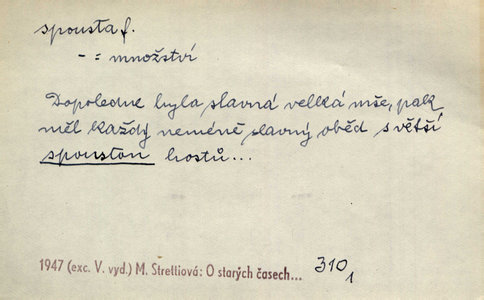 spousta f.
- = množství
Dopoledne byla slavná velká mše, pak
měl každý neméně slavný oběd s větší
spoustou hostů...
1947 (exc. V. vyd.) M. Strettiová: O starých časech... 310
1